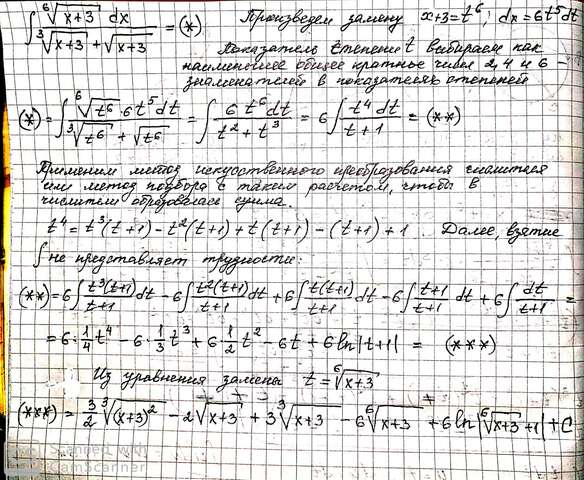 ∫ ⁶√(x+3) dx / (³√(x+3) + √(x+3)) = (*) Произведем замену x+3 = t⁶; dx = 6t⁵dt
Показатель степени t выбираем как
наименьшее общее кратное чисел 2, 4 и 6 –
знаменателей в показателях степеней
(*) = ∫ ⁶√(t⁶)·6t⁵dt / (³√(t⁶) + √(t⁶)) = ∫ 6t⁶dt / (t² + t³) = 6∫ t⁴dt / (t+1) = (**)
Применим метод искуственного преобразования числителя
или метод подбора с таким расчетом, чтобы в
числителе образовалась сумма.
t⁴ = t³(t+1) – t²(t+1) + t(t+1) – (t+1) + 1. Далее, взятие
∫ не представляет трудности:
(**) = 6∫ t³(t+1)/(t+1) dt – 6∫ t²(t+1)/(t+1) dt + 6∫ t(t+1)/(t+1) dt – 6∫ (t+1)/(t+1) dt + 6∫ dt/(t+1) =
= 6·1/4 t⁴ – 6·1/3 t³ + 6·1/2 t² – 6t + 6ln|t+1| = (***)
Из уравнения замены t = ⁶√(x+3)
(***) = 3/2 ³√((x+3)²) – 2√(x+3) + 3 ³√(x+3) – 6 ⁶√(x+3) + 6ln|⁶√(x+3) + 1| + C
Scanned with
CamScanner